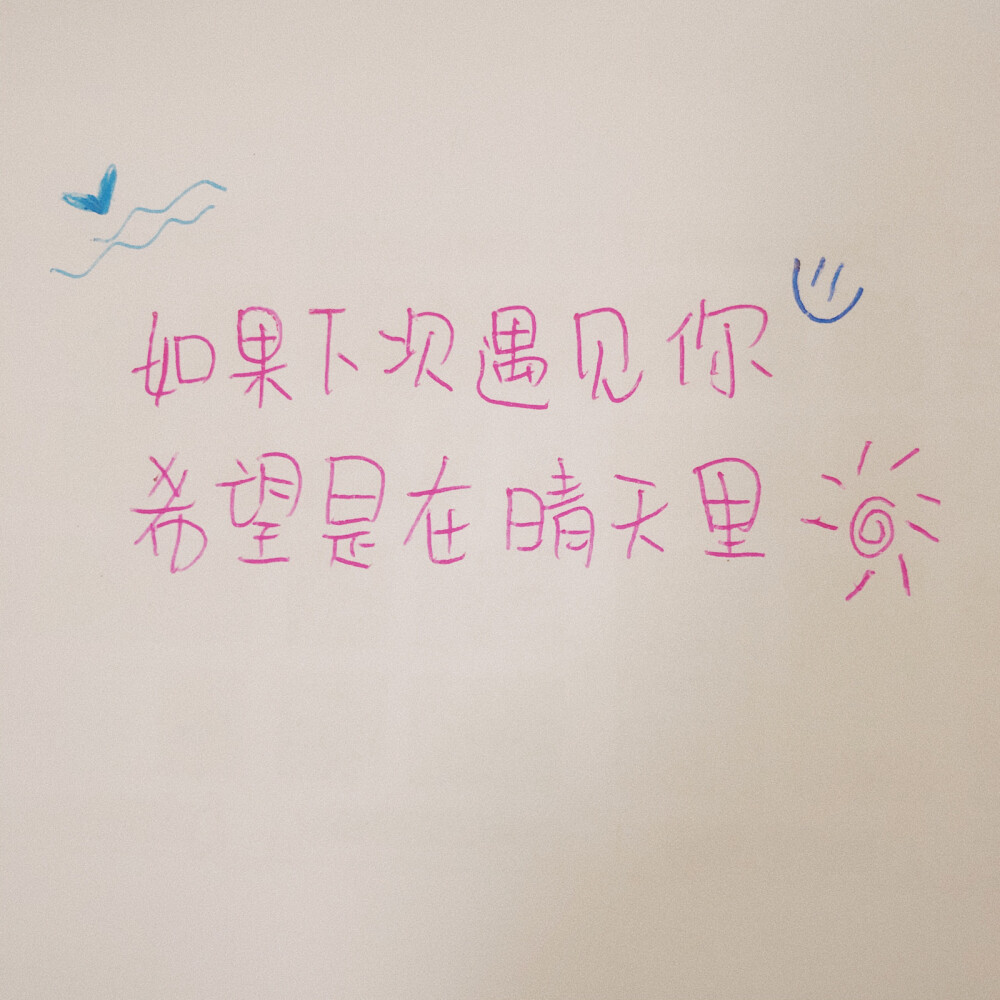 如果下次遇见你
希望是在晴天里